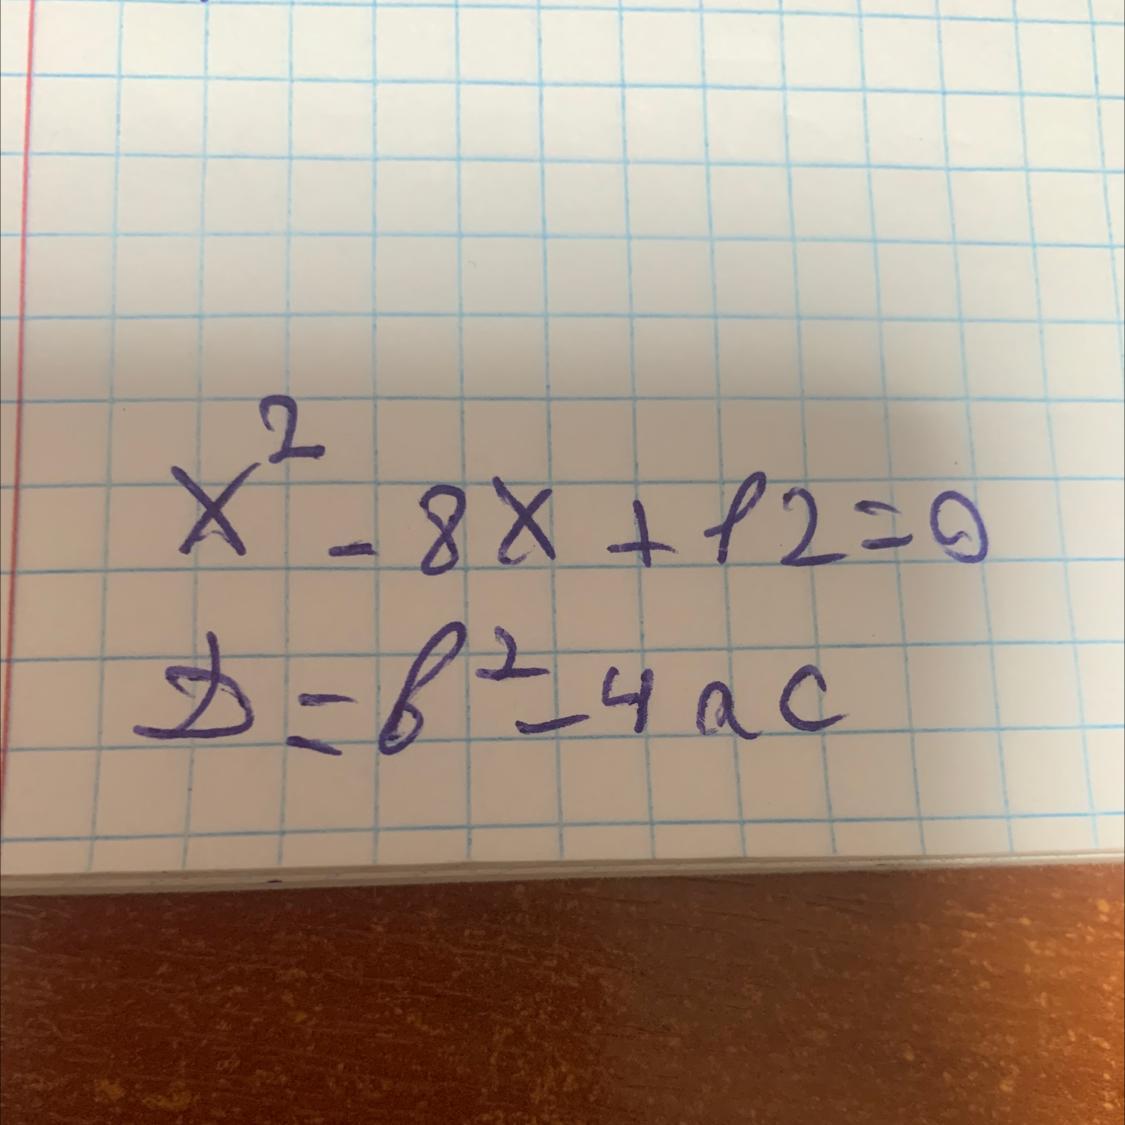 x² - 8x + 12 = 0
D = b² - 4ac